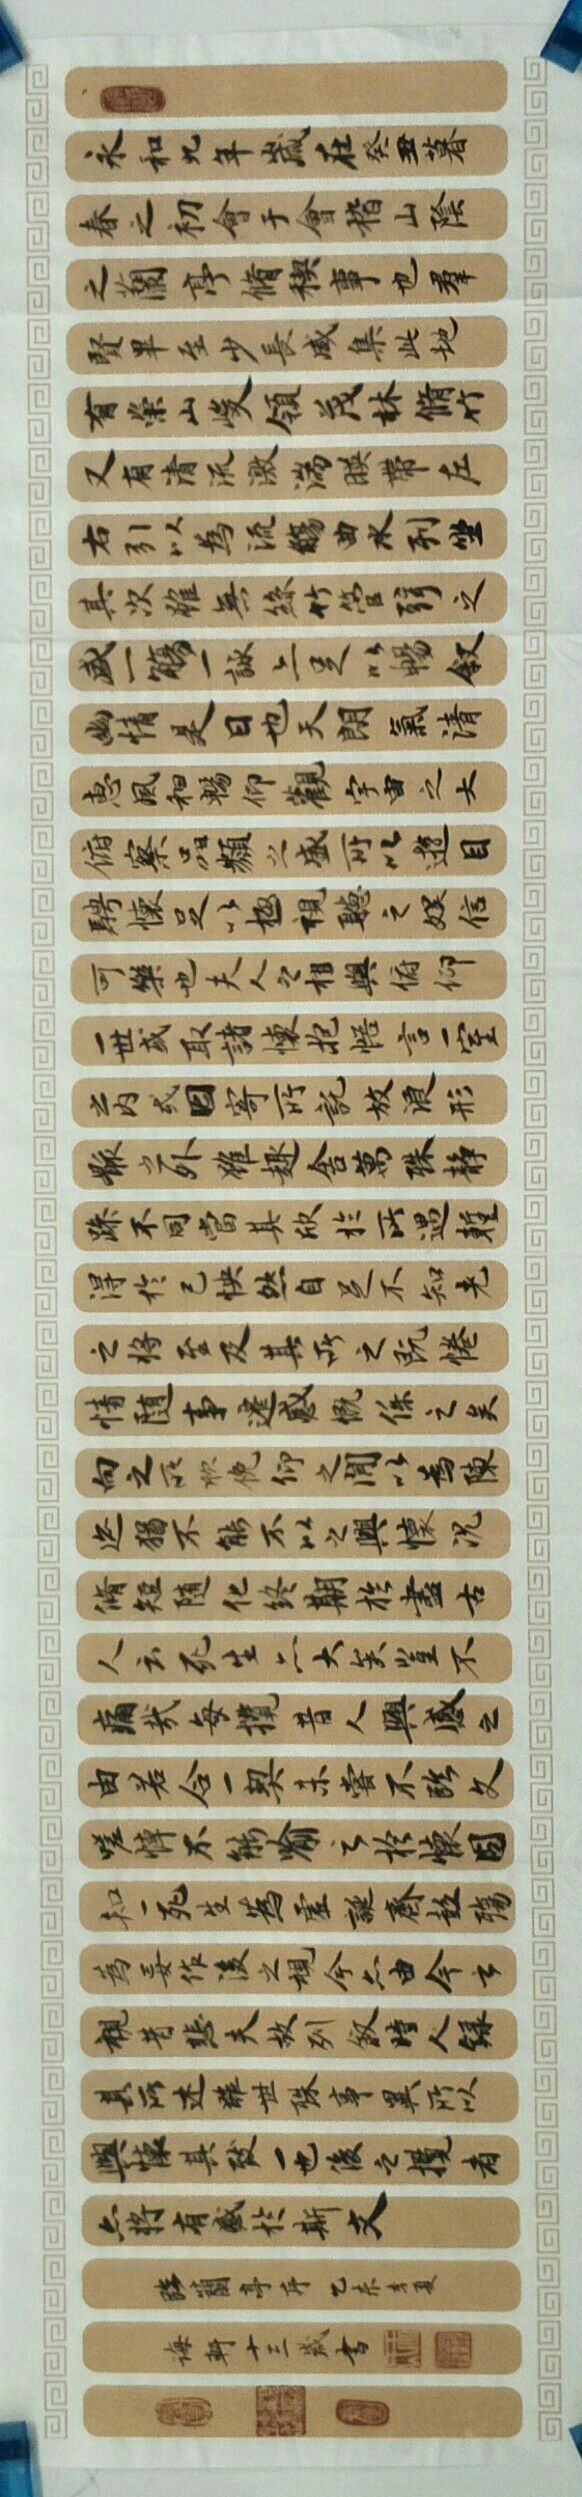 永和九年歲在癸丑暮
春之初會于會稽山陰
之蘭亭脩稧事也羣
賢畢至少長咸集此地
有崇山峻領茂林脩竹
又有清流激湍暎帶左
右引以為流觴曲水列坐
其次雖無絲竹管弦之
盛一觴一詠亦足以暢叙
幽情是日也天朗氣清
恵風和暢仰觀宇宙之大
俯察品類之盛所以遊目
騁懷足以極視聽之娛信
可樂也夫人之相與俯仰
一世或取諸懷抱悟言一室
之內或因寄所託放浪形
骸之外雖趣舍萬殊静
躁不同當其欣於所遇蹔
得於己快然自足不知老
之將至及其所之既惓
情隨事遷感慨係之矣
向之所欣俛仰之閒以為陳
迹猶不能不以之興懷況
脩短隨化終期於盡古
人云死生亦大矣豈不
痛哉每攬昔人興感之
由若合一契未嘗不臨文
嗟悼不能喻之於懷固
知一死生為虛誕齊彭殤
為妄作後之視今亦由今之
視昔悲夫故列叙時人錄
其所述雖世殊事異所以
興懷其致一也後之攬者
亦將有感於斯文
臨蘭亭序乙未季夏
海軒十三歲書